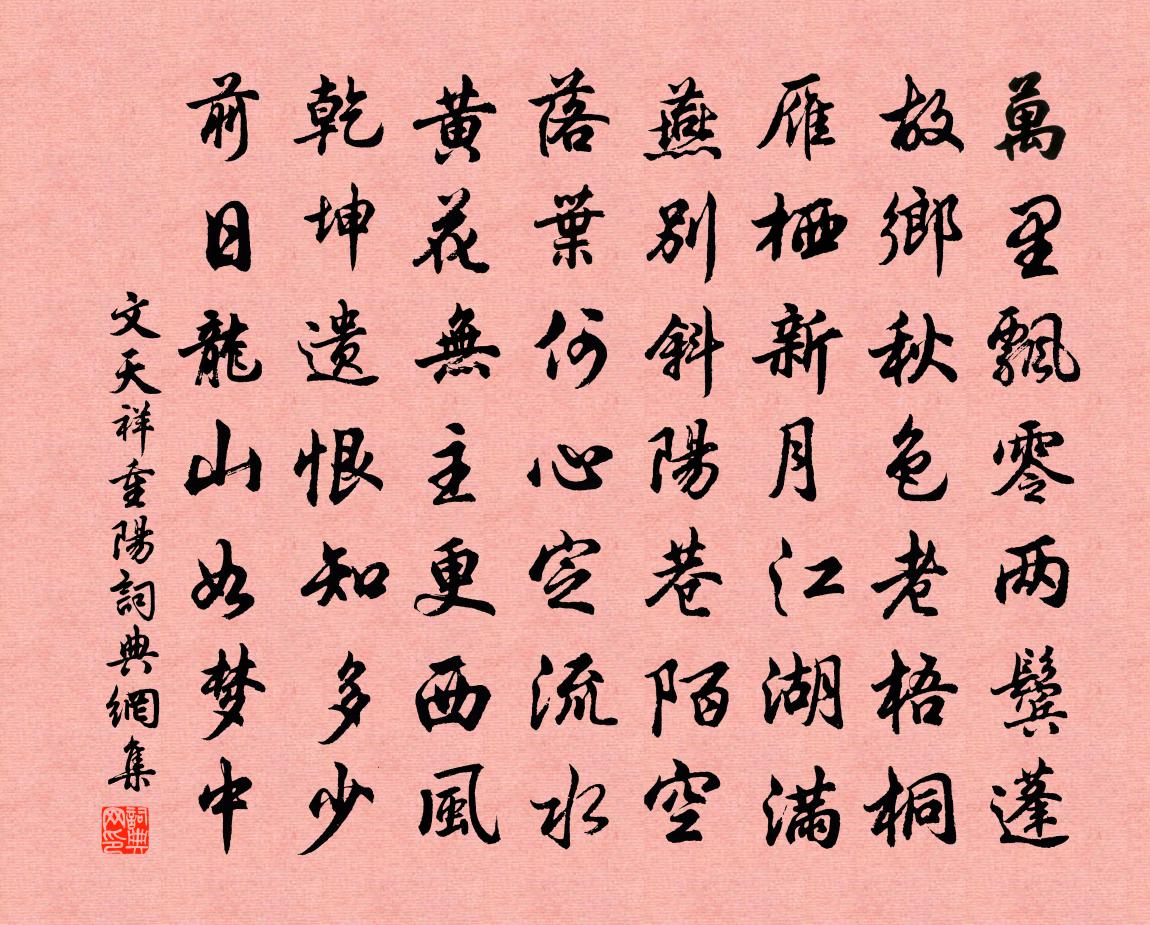 萬里飄零两鬓蓬
故鄉秋色老梧桐
雁栖新月江湖滿
燕別斜陽巷陌空
落葉何心定流水
黄花無主更西風
乾坤遺恨知多少
前日龍山如梦中
文天祥重陽詞典網集
詞典网印